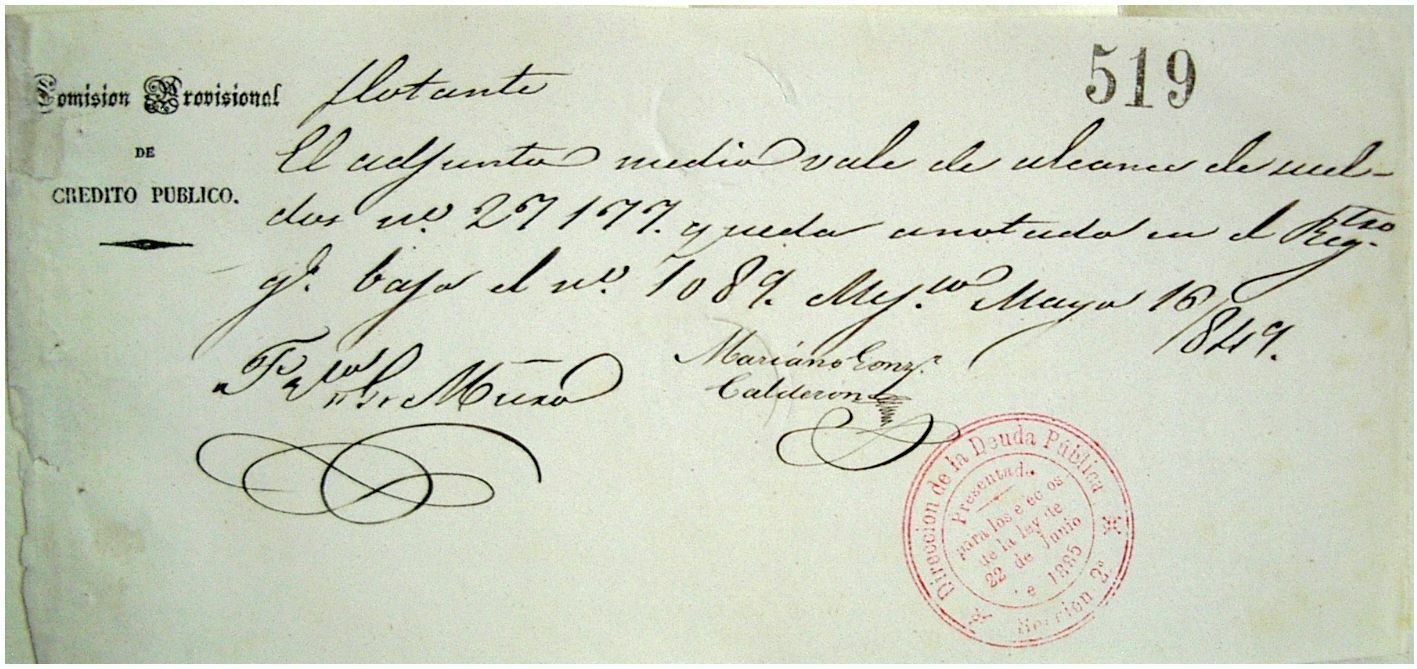 519
Comision Provisional
DE
CREDITO PUBLICO.
flotante
El adjunto medio vale de alcance de suel-
dos nº. 27177. queda anotado en el Regtro
gl. bajo el nº. 1089. Mejco Mayo 16/849.
Mariano Gonz.
Calderon
Direccion de la Deuda Pública
Presentad
para los e ec os
de la ley de
22 de Junio
e 1885
Sección 2ª